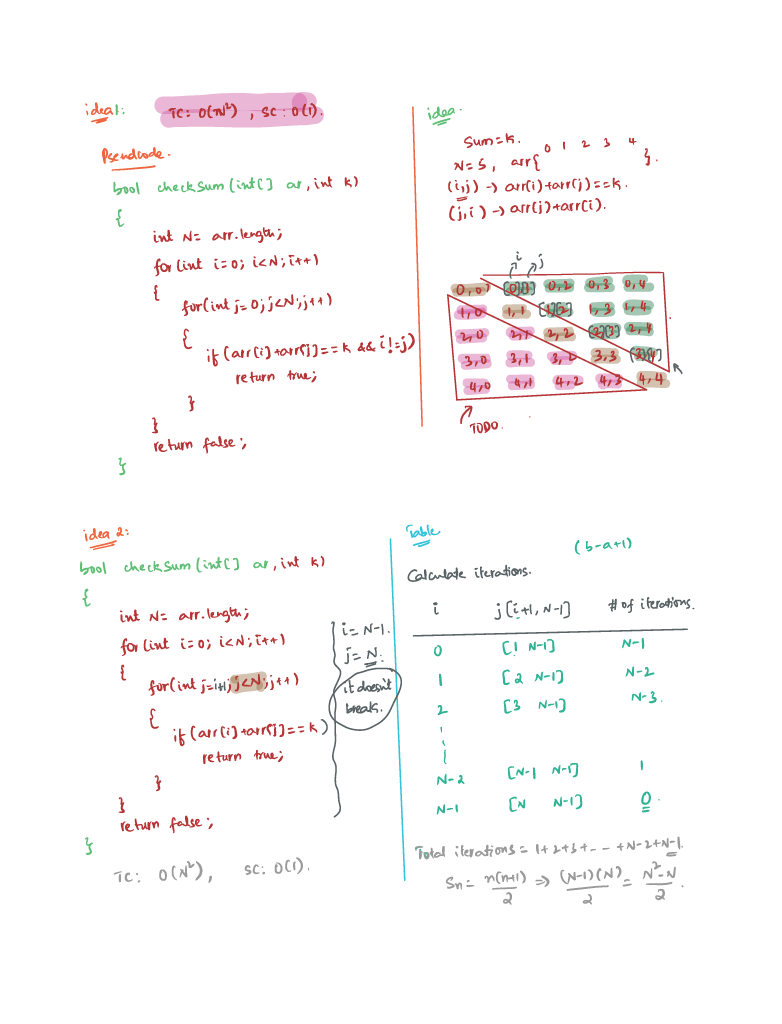 idea1:
TC: O(N²) , SC: O(1).
Pseudcode.
bool checkSum (int[] ar, int k)
{
int N= arr.length;
for (int i=0; i<N; i++)
{
for(int j=0; j<N; j++)
{
if (arr[i]+arr[j]==k && i!=j)
return true;
}
}
return false;
}
idea.
Sum=k.
0 1 2 3 4
N=5, arr{ }.
(i,j) -> arr(i)+arr(j)==k.
(j,i) -> arr(j)+arr(i).
i j
0,0 0,2 0,3 0,4
1,0 1,1 1,3 1,4
2,0 2,1 2,2 2,4
3,0 3,1 3,2 3,3
4,0 4,1 4,2 4,3 4,4
TODO.
idea 2:
bool checkSum (int[] ar, int k)
{
int N= arr.length;
for (int i=0; i<N; i++)
{
for(int j=i+1; j<N; j++)
{
if (arr[i]+arr[j]==k)
return true;
}
}
return false;
}
TC: O(N²), SC: O(1).
i= N-1.
j= N.
it doesn't
break.
Table
(b-a+1)
Calculate iterations.
i j[i+1, N-1] # of iterations.
0 [1 N-1] N-1
1 [2 N-1] N-2
2 [3 N-1] N-3.
N-2 [N-1 N-1] 1
N-1 [N N-1] 0.
Total iterations = 1+2+3+- - - +N-2+N-1.
Sn= n(n+1)/2 => (N-1)(N)/2 = N²-N/2.